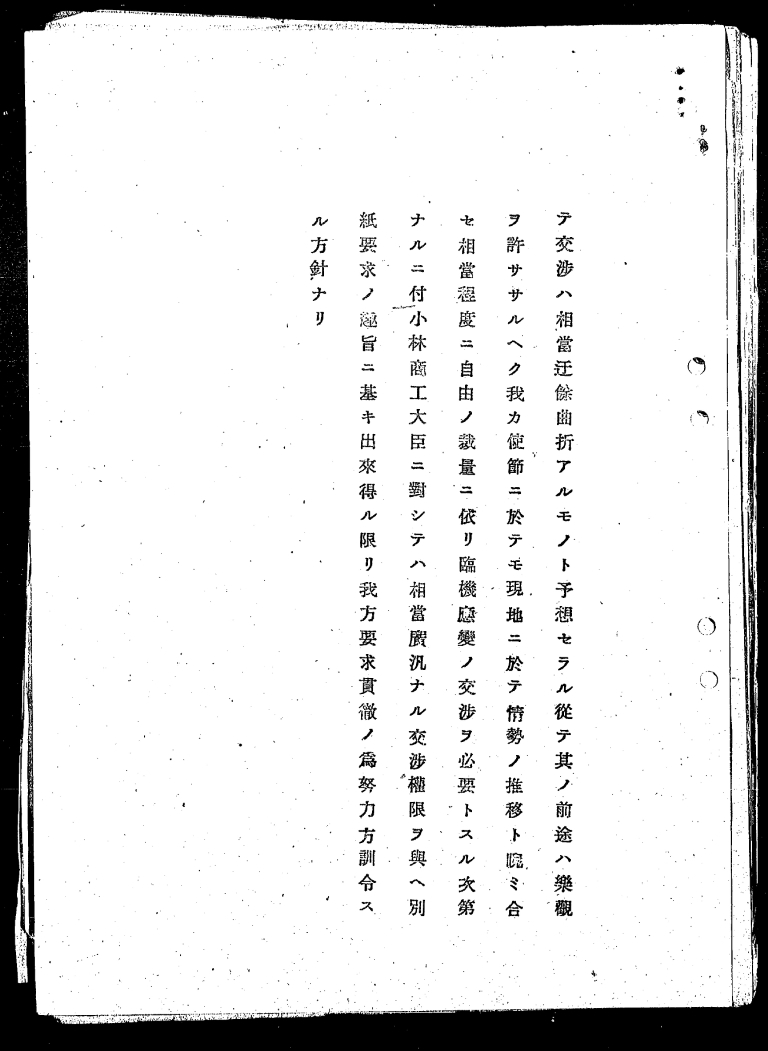 テ交涉ハ相當迂餘曲折アルモノト予想セラル從テ其ノ前途ハ樂觀
ヲ許ササルヘク我カ使節ニ於テモ現地ニ於テ情勢ノ推移ト睨ミ合
セ相當程度ニ自由ノ裁量ニ依リ臨機應變ノ交涉ヲ必要トスル次第
ナルニ付小林商工大臣ニ對シテハ相當廣汎ナル交涉權限ヲ與ヘ別
紙要求ノ趣旨ニ基キ出來得ル限リ我方要求貫徹ノ爲努力方訓令ス
ル方針ナリ